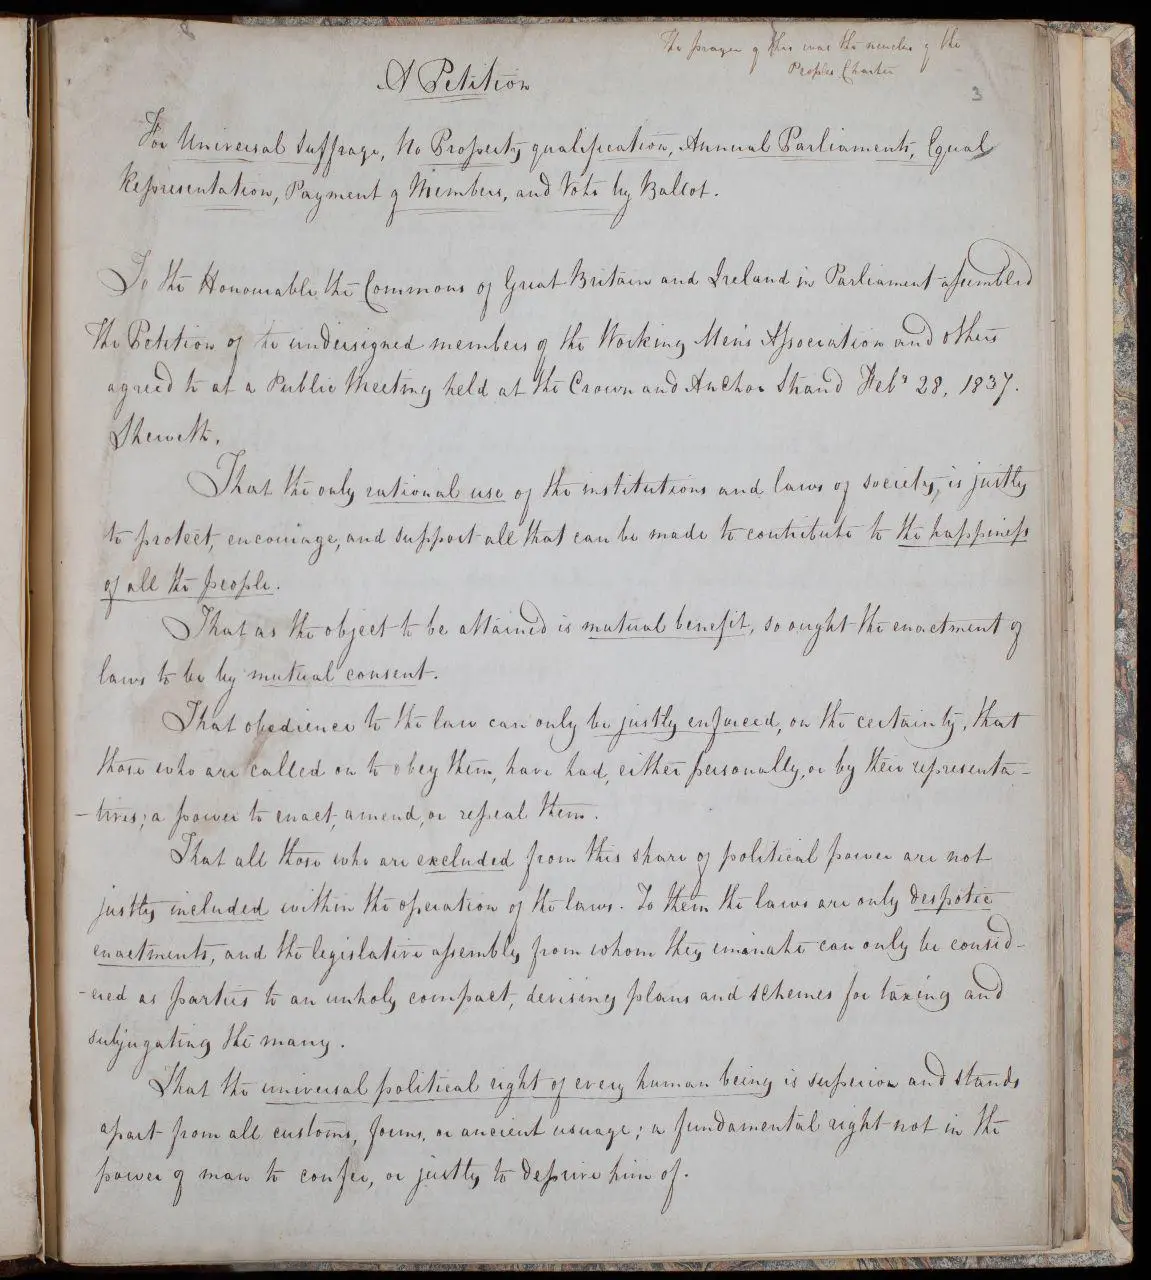 The prayer of this was the nucleus of the
Peoples Charter
3
A Petition
For Universal Suffrage, No Property qualification, Annual Parliaments, Equal
Representation, Payment of Members, and Vote by Ballot.
To the Honourable the Commons of Great Britain and Ireland in Parliament assembled
The Petition of the undersigned members of the Working Men's Association and others
agreed to at a Public Meeting held at the Crown and Anchor Strand Feby 28, 1837.
Sheweth,
That the only rational use of the institutions and laws of society, is justly
to protect, encourage, and support all that can be made to contribute to the happiness
of all the people.
That as the object to be attained is mutual benefit, so ought the enactment of
laws to be by mutual consent.
That obedience to the law can only be justly enforced, on the certainty, that
those who are called on to obey them, have had, either personally, or by their representa-
-tives; a power to enact, amend, or repeal them.
That all those who are excluded from this share of political power are not
justly included within the operation of the laws. To them the laws are only despotic
enactments, and the legislative assembly from whom they eminate can only be consid-
-ered as parties to an unholy compact, devising plans and schemes for taxing and
subjugating the many.
That the universal political right of every human being is superior and stands
apart from all customs, forms, or ancient usuage; a fundamental right not in the
power of man to confer, or justly to deprive him of.